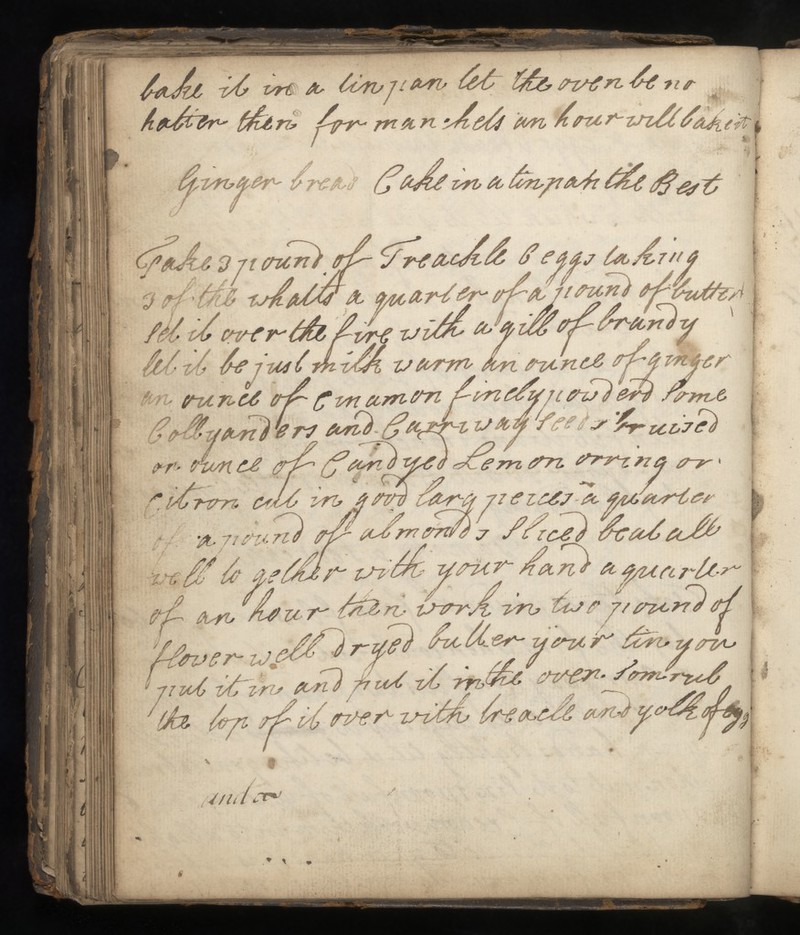 bake it in a tin pan let the oven be no
hatter then for man:hets an hour will bake it
Ginger bread Cake in a tin pan the Best
Take 3 pound of Treackle 6 eggs taking
3 of the whaits a quarter of a pound of butter
Set it over the fire with a gill of brandy
let it be just milk warm an ounce of ginger
an ounce of Cinamon finely powderd Some
Collyanders and Carriway Seeds bruised
an ounce of Candyed Lemon orring or
Citron cut in good larg peices a quarter
of a pound of almonds Sliced beat all
well to gether with your hand a quarter
of an hour then work in two pound of
flover well dryed butter your tin you
put it in and put it in the oven Som rub
the top of it over with treacle and yolk of egg
and a